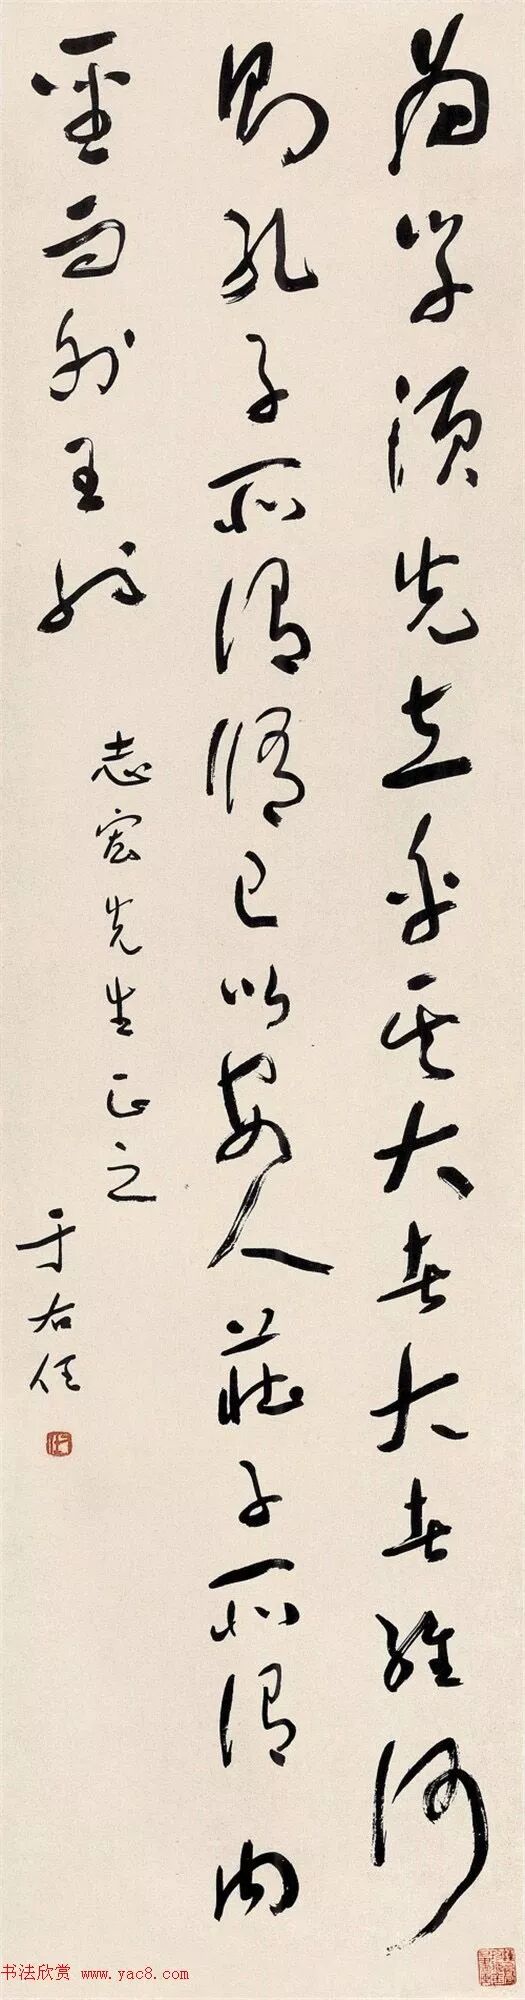 為學須先立乎其大者大者維何
則孔子所謂脩己以安人莊子所謂內
聖而外王語
志宏先生正之
于右任
书法欣赏 www.yac8.com